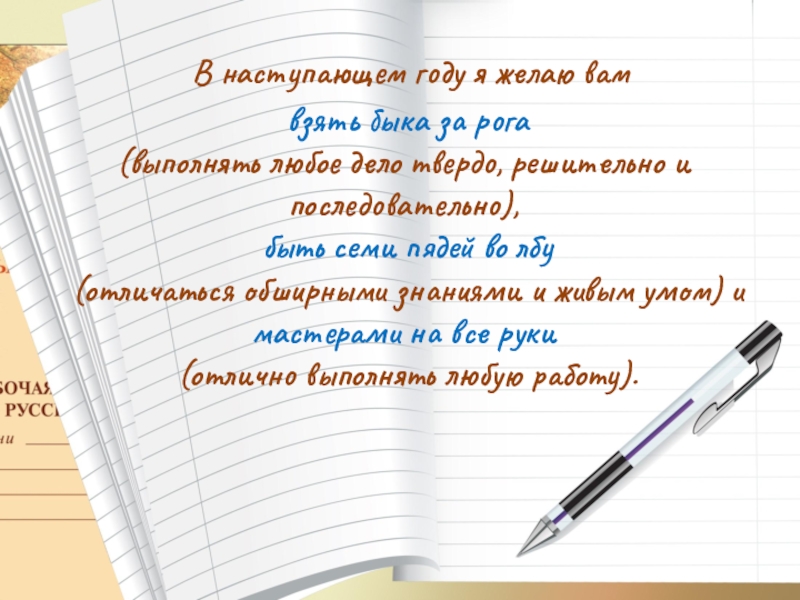 В наступающем году я желаю вам
взять быка за рога
(выполнять любое дело твердо, решительно и
последовательно),
быть семи пядей во лбу
(отличаться обширными знаниями и живым умом) и
мастерами на все руки
(отлично выполнять любую работу).